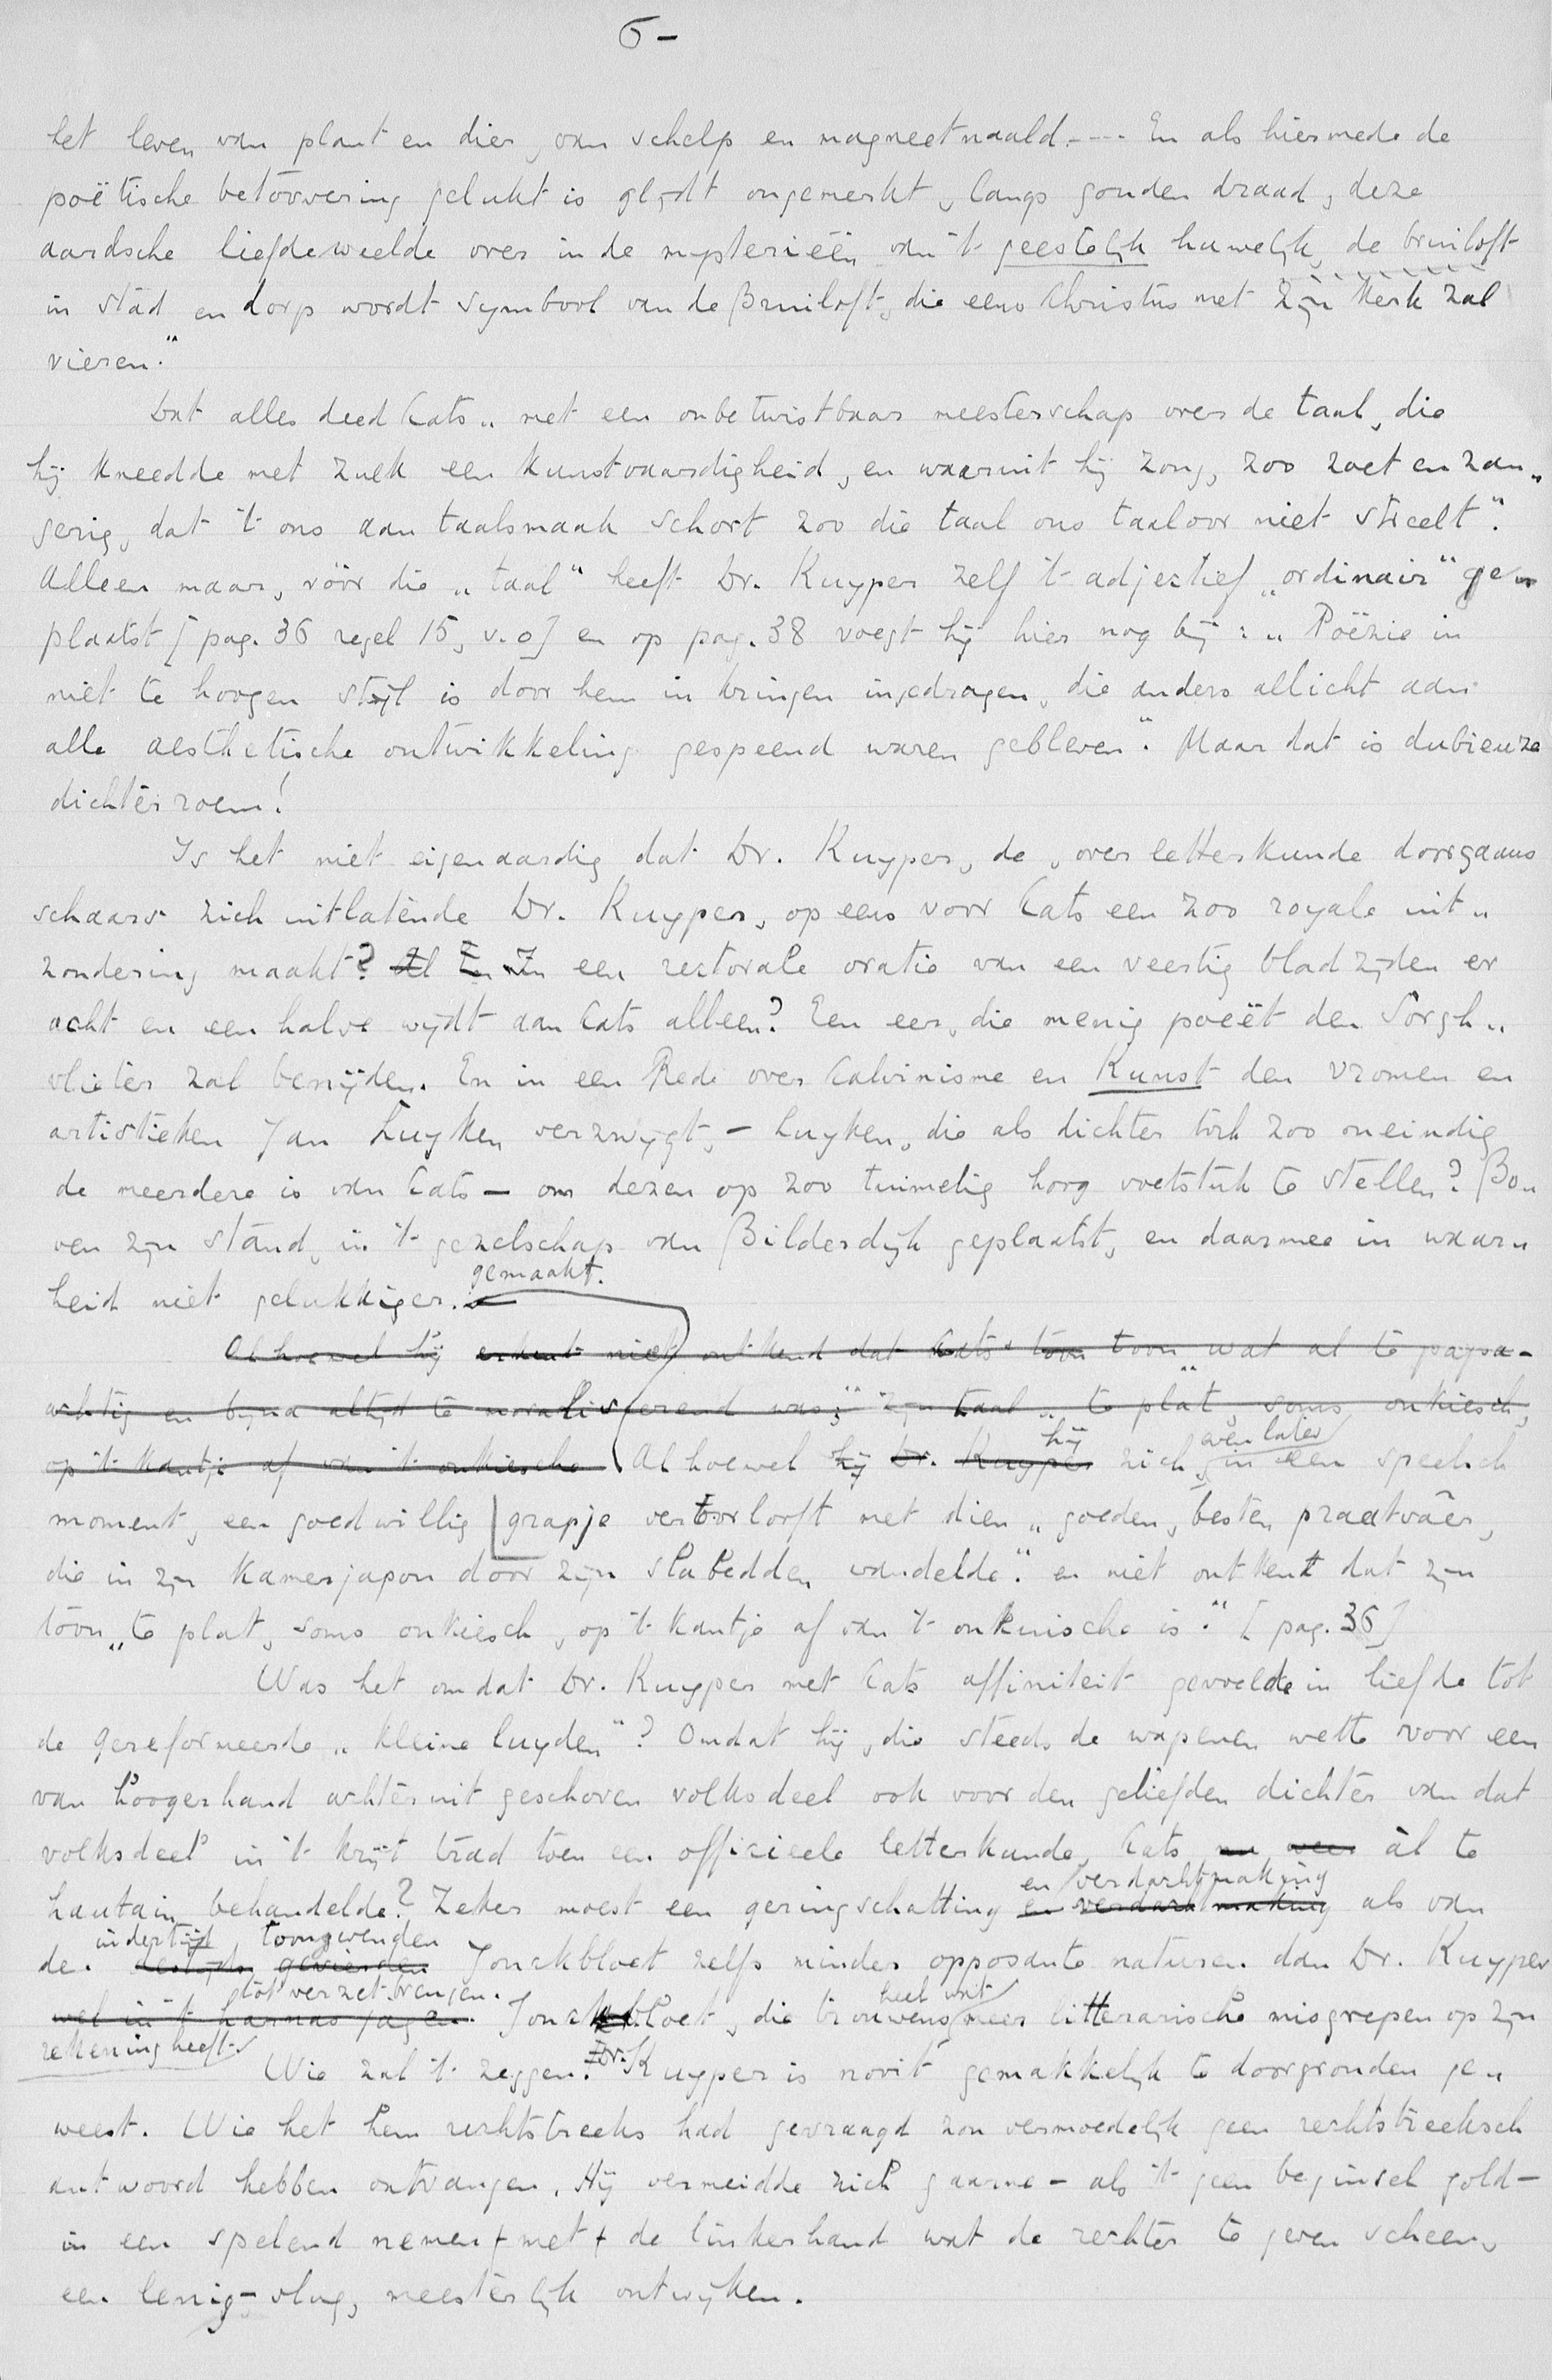 6-
het leven van plant en dier, van schelp en magneetnaald.--- En als hiermede de
poëtische betoovering gelukt is glydt ongemerkt, langs gouden draad, deze
aardsche liefdeweelde over in de mysterieën van 't geestelijk huwelijk, de bruiloft
in stad en dorp wordt symbool van de Bruiloft, die eens Christus met Zijn Kerk zal
vieren."
Dat alles deed Cats „met een onbetwistbaar meesterschap over de taal, die
hij kneedde met zulk een kunstvaardigheid, en waaruit hij zong, zoo zoet en zan„
gerig, dat 't ons aan taalsmaak schort zoo die taal ons taaloor niet streelt".
Alleen maar, vóór die „taal" heeft Dr. Kuyper zelf 't adjectief „ordinair" ge„
plaatst [pag. 36 regel 15, v.o] en op pag. 38 voegt hij hier nog bij: „Poëzie in
niet te hoogen stijl is door hem in kringen ingedragen, die anders allicht aan
alle aesthetische ontwikkeling gespeend waren gebleven". Maar dat is dubieuze
dichterroem!
Is het niet eigenaardig dat Dr. Kuyper, de, over letterkunde doorgaans
schaars zich uitlatende Dr. Kuyper, opeens voor Cats een zoo royale uit„
zondering maakt? Al En In een rectorale oratie van een veertig bladzijden er
acht en een halve wydt aan Cats alleen? Een eer, die menig poëet den Sorgh„
vlieter zal benijden. En in een Rede over Calvinisme en Kunst den vromen en
artistieken Jan Luyken verzwijgt, - Luyken, die als dichter toch zoo oneindig
de meerdere is van Cats - om dezen op zoo tuimelig hoog voetstuk te stellen? Bo„
ven zijn stand, in 't gezelschap van Bilderdijk geplaatst, en daarmee in waar„
gemaakt.
heid niet gelukkiger.
Alhoewel hij erkent niet ontkend dat Cats' toon toon wat al te papa-
achtig en byna altijd te moraliseerend was;" zijn taal „te plat, soms onkiesch,
op 't kantje af van 't onkiesche Alhoewel hij Dr. Kuyper hij zich, even later in een speelsch
moment, een goedwillig grapje veroorlooft met dien „goeden, besten praatvaêr,
die in zijn kamerjapon door zijn slabedden wandelde". en niet ontkent dat zijn
toon „te plat, soms onkiesch, op 't kantje af van 't onkuische is". [pag. 36]
Was het omdat Dr. Kuyper met Cats affiniteit gevoelde in liefde tot
de gereformeerde „kleine luyden"? Omdat hij, die steeds de wapenen wette voor een
van hoogerhand achteruit geschoven volksdeel ook voor den geliefden dichter van dat
volksdeel in 't krijt trad toen een officieele letterkunde, Cats, nu weer àl te
en verdachtmaking
hautain behandelde? Zeker moest een geringschatting en verdachtmaking als van
indertijd toongevenden
de. destijds gevierden Jonckbloet zelfs minder opposante naturen dan Dr. Kuyper
tot verzet brengen. heel wat
wel in 't harnas jagen. Jonckbloet, die trouwens meer litterarische misgrepen op zijn
rekening heeft.
Wie zal 't zeggen. Dr. Kuyper is nooit gemakkelijk te doorgronden ge„
weest. Wie het hem rechtstreeks had gevraagd zou vermoedelijk geen rechtstreeksch
antwoord hebben ontvangen. Hij vermeidde zich gaarne - als 't geen beginsel gold -
in een spelend nemen met de linkerhand wat de rechter te geven scheen,
een lenig-vlug, meesterlijk ontwijken.